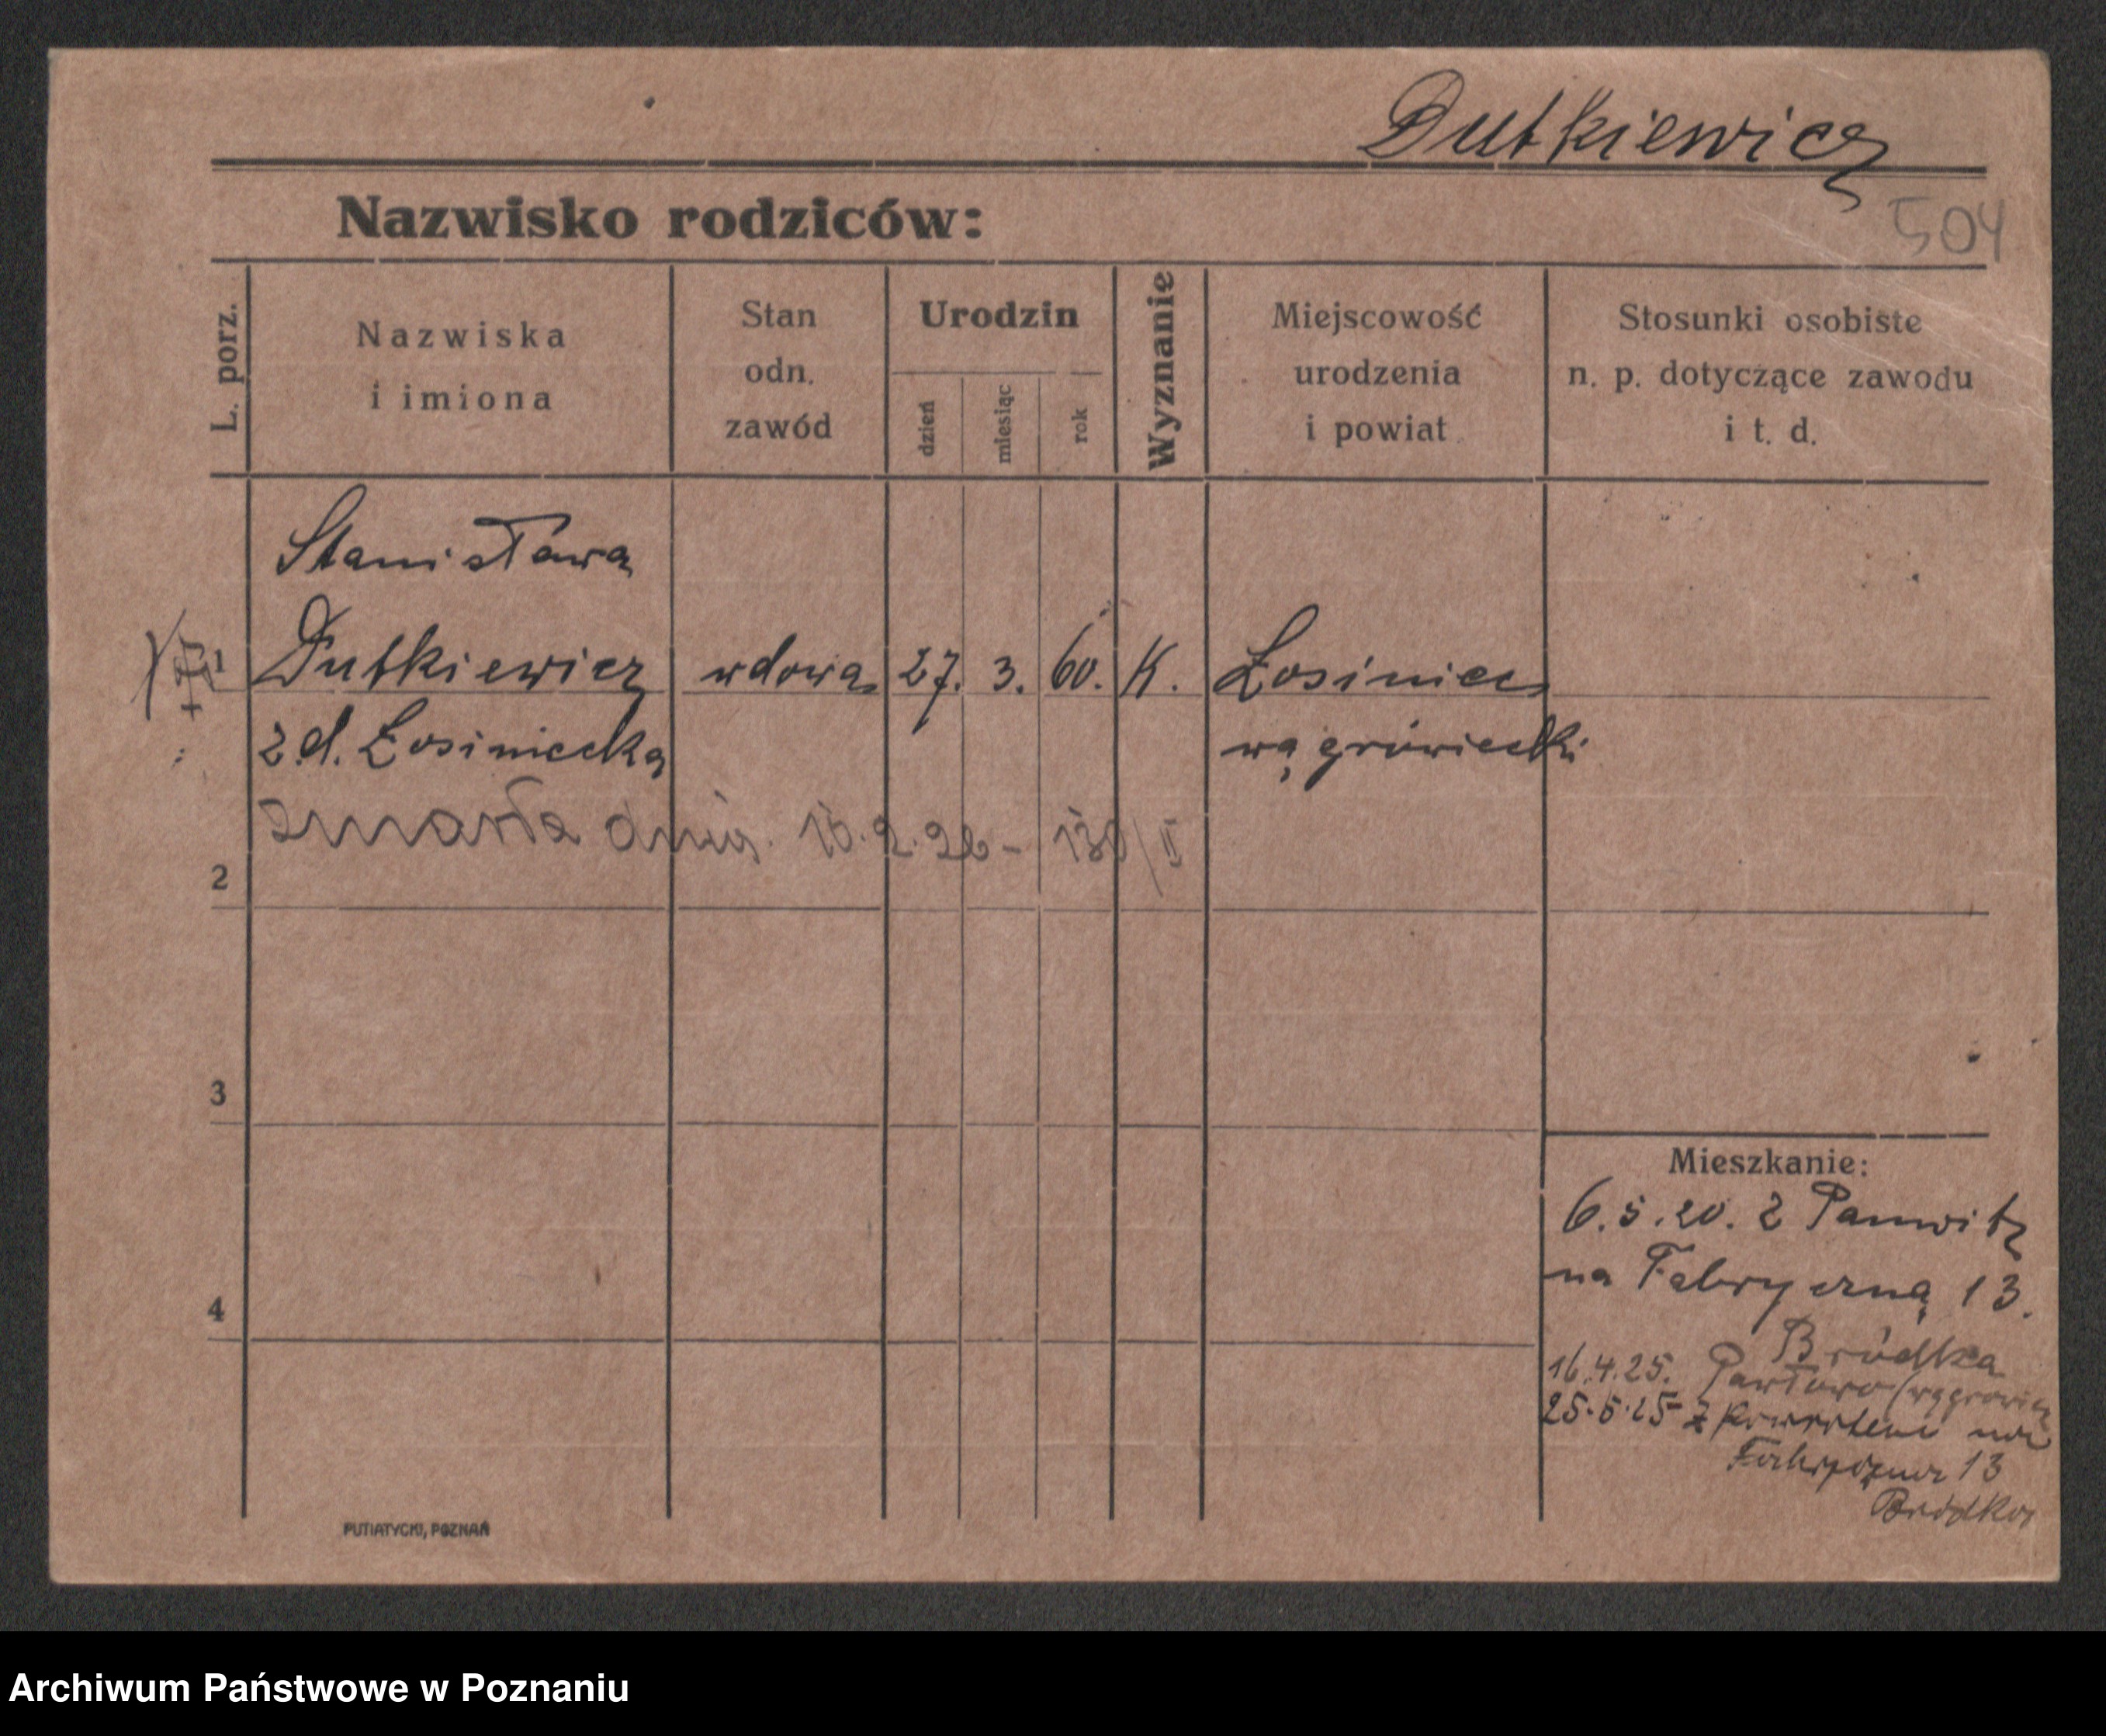 Dutkiewicz
504
Nazwisko rodziców:
L. porz.
Nazwiska
i imiona
Stan
odn.
zawód
Urodzin
dzień
miesiąc
rok
Wyznanie
Miejscowość
urodzenia
i powiat
Stosunki osobiste
n. p. dotyczące zawodu
i t. d.
Stanisława
1 Dutkiewicz wdowa 27. 3. 60. K. Łosiniec
z.d. Łosiniecka wągrówiecki
zmarła dnia 16.2.26 - 130/II
2
3
4
Mieszkanie:
6.5.20. z Panwitz
na Fabryczną 13.
Bródka
16.4.25. Pawłowo (wągrowiec
25.5.25 z powrotem na
Fabryczna 13
Bródka
PUTIATYCKI, POZNAŃ
Archiwum Państwowe w Poznaniu